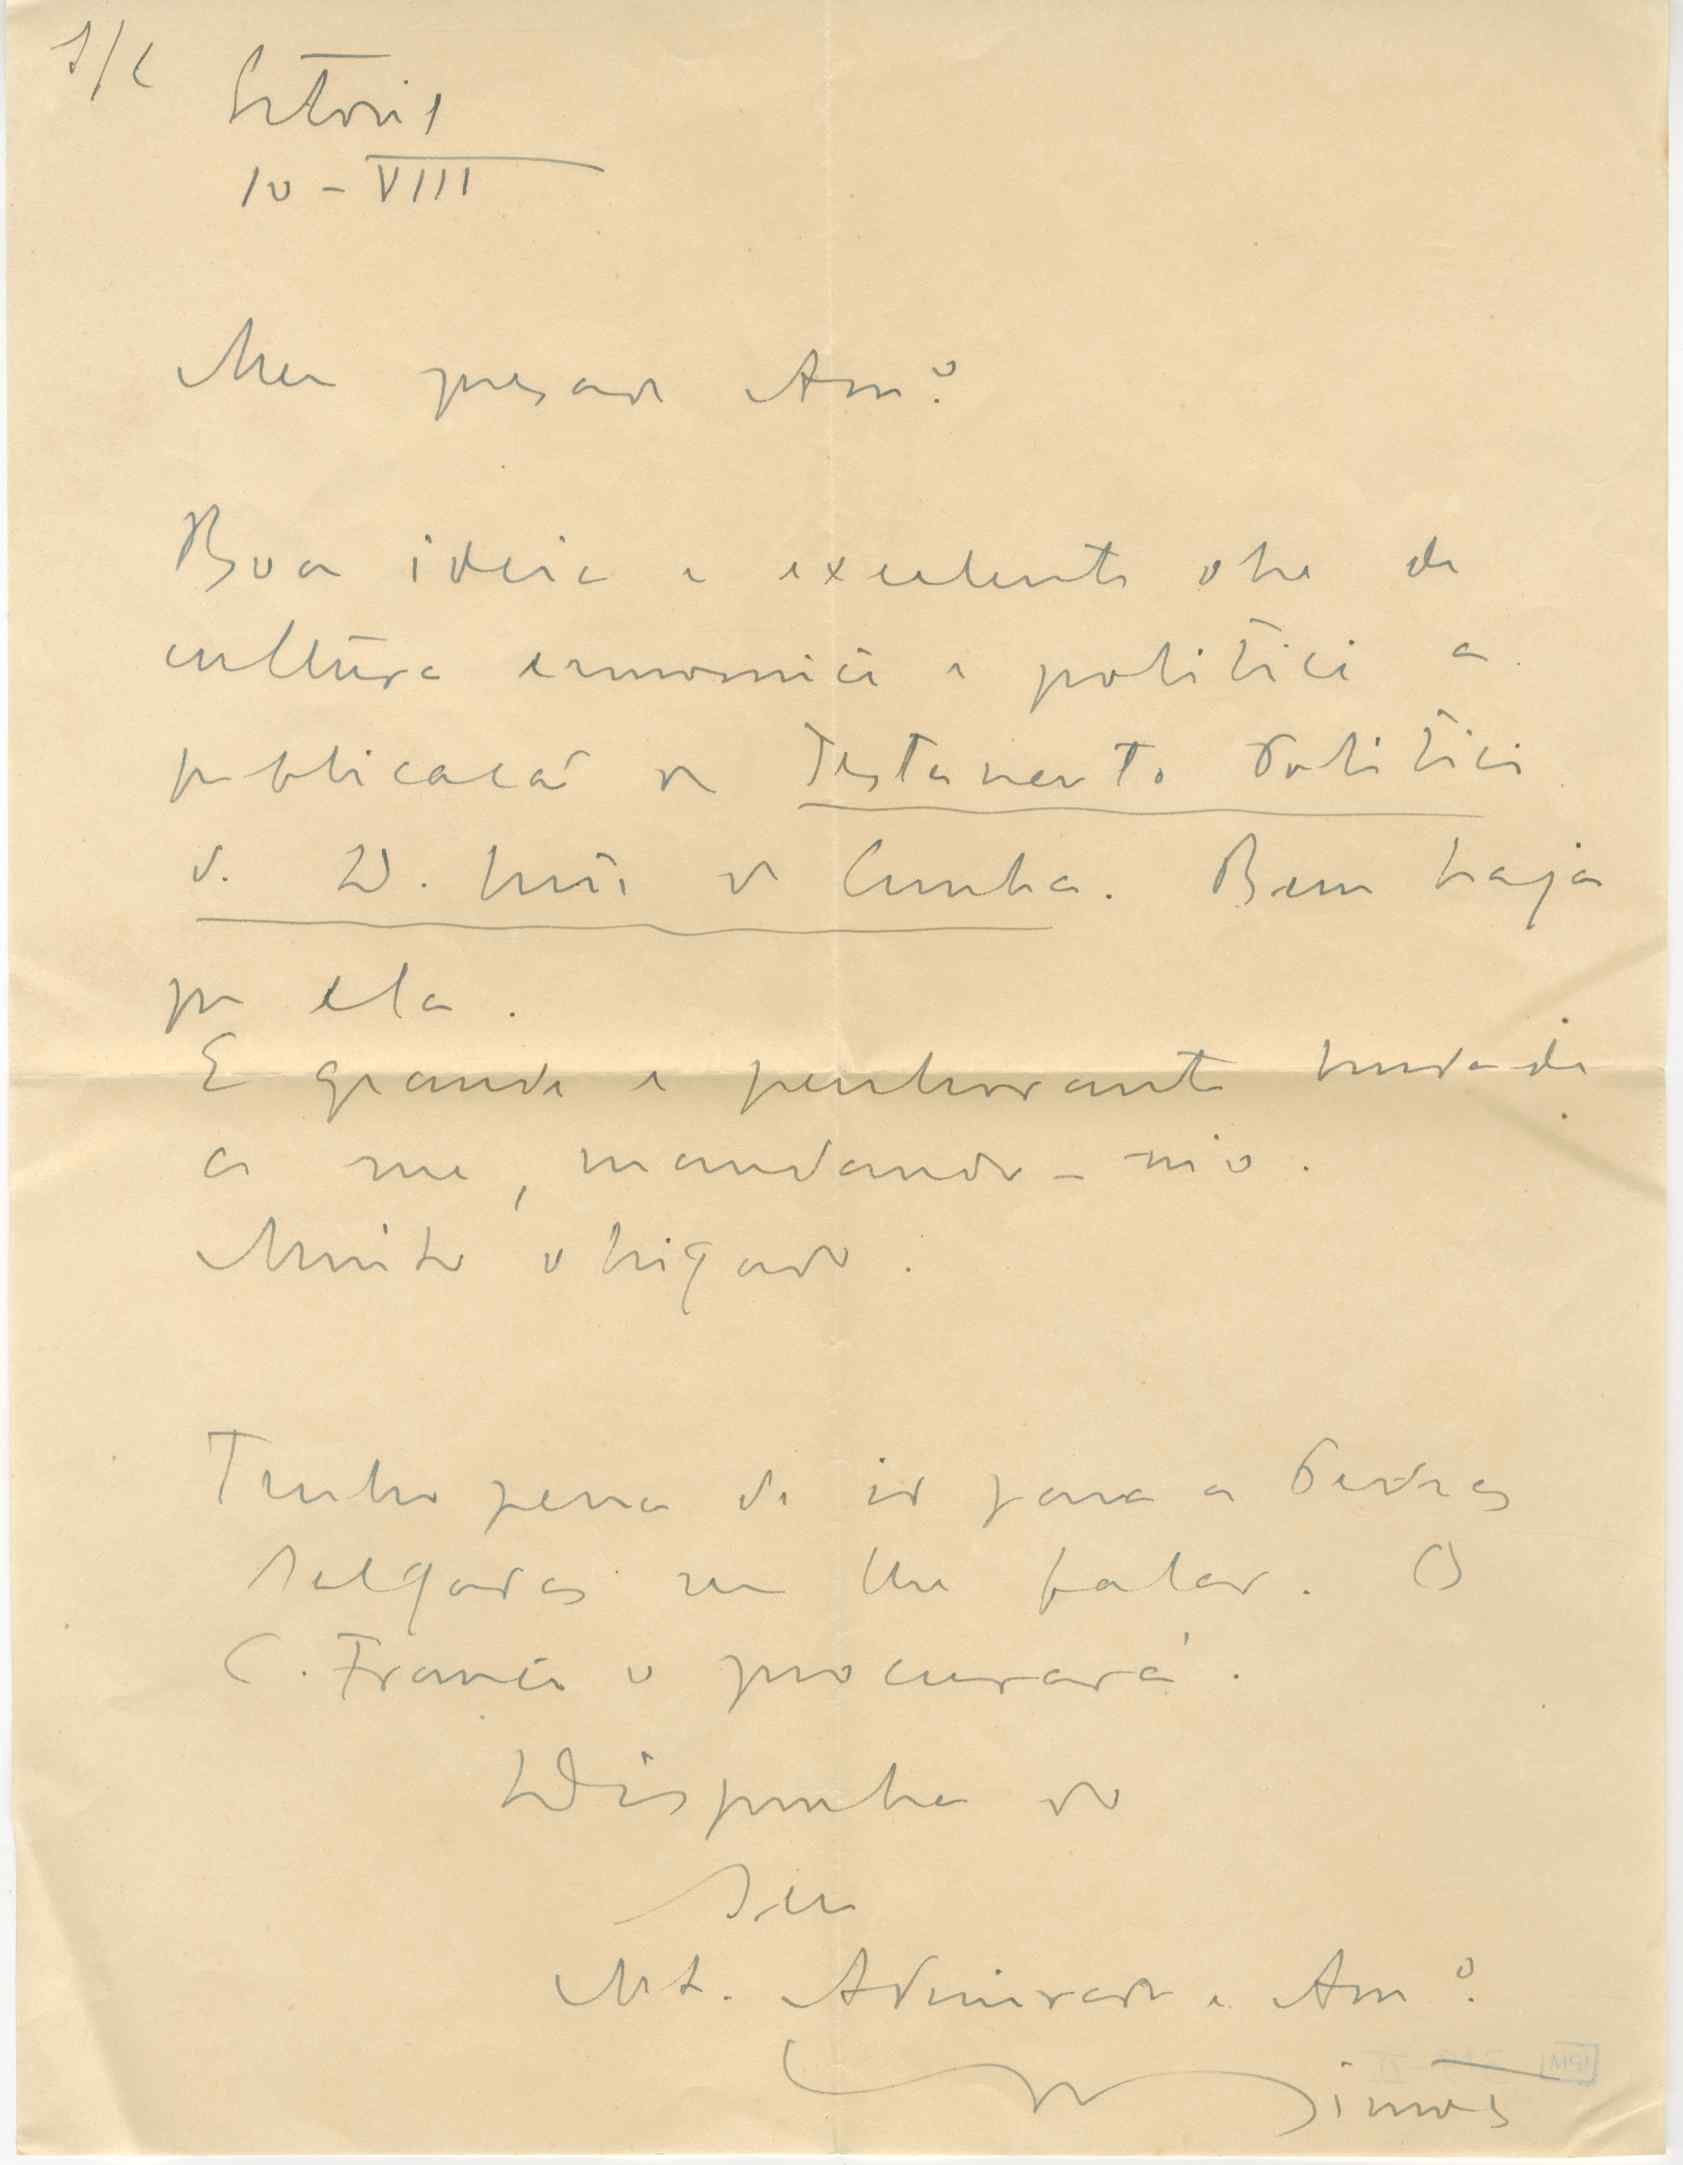 S/C
Estoril
10-VIII
Meu presado Amº.
Boa ideia e excelente obra de
cultura economica e politica a
publicacão do Testamento Politico
de D. Luis da Cunha. Bem haja
por ela.
E grande e penhorante bondade
a sua, mandando-mo.
Muito obrigado.
Tenho pena de ir para as Pedras
Salgadas sem lhe falar. O
C. França o procurará.
Disponha do
Seu
Mt. Admirador e Amº.
Simões